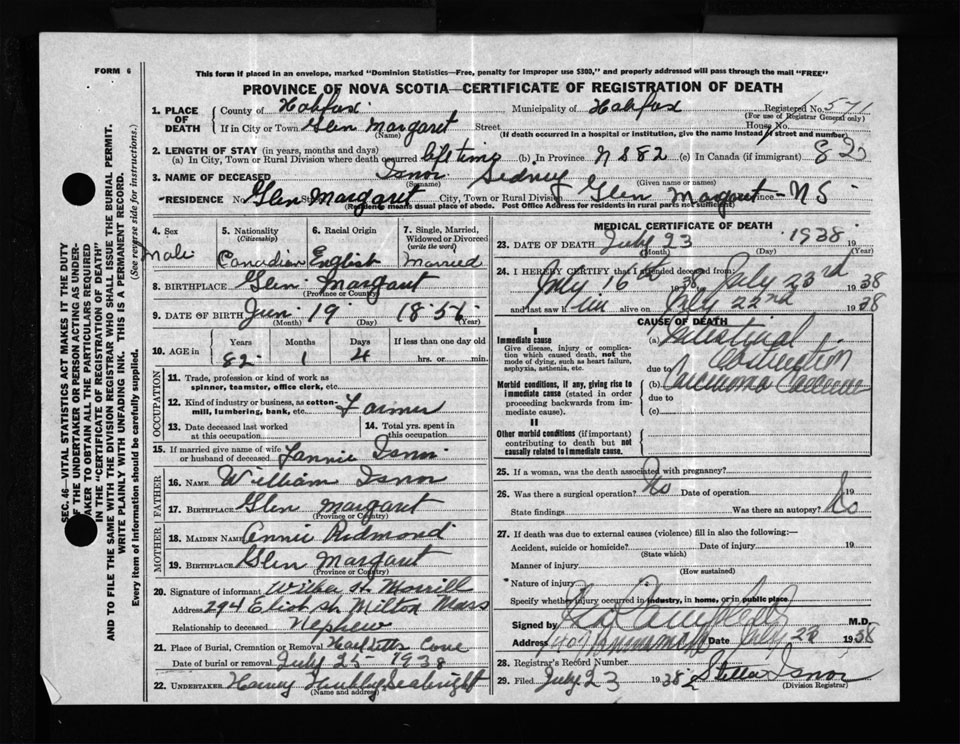 FORM 6
This form if placed in an envelope, marked "Dominion Statistics—Free, penalty for improper use $300," and properly addressed will pass through the mail "FREE"
PROVINCE OF NOVA SCOTIA—CERTIFICATE OF REGISTRATION OF DEATH
1. PLACE OF DEATH County of Halifax Municipality of Halifax Registered No. 571
(For use of Registrar General only)
If in City or Town Glen Margaret Street House No.
(Name) (If death occurred in a hospital or institution, give the name instead of street and number)
2. LENGTH OF STAY (in years, months and days)
(a) In City, Town or Rural Division where death occurred life time (b) In Province N S 82 (c) In Canada (if immigrant) 82
3. NAME OF DECEASED Isnor Sedney
(Surname) (Given name or names)
RESIDENCE No. Glen Margaret City, Town or Rural Division Glen Margaret Province N S
(Residence means usual place of abode. Post Office Address for residents in rural parts not sufficient)
4. Sex 5. Nationality (Citizenship) 6. Racial Origin 7. Single, Married, Widowed or Divorced (write the word)
Male Canadian English Married
8. BIRTHPLACE Glen Margaret
(Province or Country)
9. DATE OF BIRTH Jun 19 1856
(Month) (Day) (Year)
10. AGE in Years Months Days If less than one day old
82 1 4 hrs. or min.
OCCUPATION
11. Trade, profession or kind of work as spinner, teamster, office clerk, etc.
12. Kind of industry or business, as cotton-mill, lumbering, bank, etc. Farmer
13. Date deceased last worked at this occupation
14. Total yrs. spent in this occupation
15. If married give name of wife or husband of deceased Fannie Isnor
FATHER
16. NAME William Isnor
17. BIRTHPLACE Glen Margaret
(Province or Country)
MOTHER
18. MAIDEN NAME Annie Redmond
19. BIRTHPLACE Glen Margaret
(Province or Country)
20. Signature of informant Wilber H. Merrill
Address 294 Eliot St Milton Mass
Relationship to deceased Nephew
21. Place of Burial, Cremation or Removal Cove
Date of burial or removal July 25 - 1938
22. UNDERTAKER Harvey Hubley Seabright
(Name and address)
MEDICAL CERTIFICATE OF DEATH
23. DATE OF DEATH July 23 1938 19
(Month) (Day) (Year)
24. I HEREBY CERTIFY that I attended deceased from
July 16th 1938 July 23rd 1938
and last saw him alive on July 22nd 1938
CAUSE OF DEATH
I
Immediate cause
Give disease, injury or complication which caused death, not the mode of dying, such as heart failure, asphyxia, asthenia, etc.
(a) Intestinal Obstruction
due to
Morbid conditions, if any, giving rise to immediate cause (stated in order proceeding backwards from immediate cause).
(b) Carcinoma
due to
(c)
II
Other morbid conditions (if important) contributing to death but not causally related to immediate cause.
25. If a woman, was the death associated with pregnancy?
26. Was there a surgical operation? No Date of operation 19
State findings Was there an autopsy? No
27. If death was due to external causes (violence) fill in also the following:—
Accident, suicide or homicide? Date of injury 19
(State which)
Manner of injury
(How sustained)
Nature of injury
Specify whether injury occurred in industry, in home, or in public place
Signed by M.D.
Address Date July 23 1938
28. Registrar's Record Number
29. Filed July 23 1938 Stella Isnor
(Division Registrar)
SEC. 46—VITAL STATISTICS ACT MAKES IT THE DUTY
OF THE UNDERTAKER OR PERSON ACTING AS UNDERTAKER TO OBTAIN ALL THE PARTICULARS REQUIRED
IN THE "CERTIFICATE OF REGISTRATION OF DEATH"
AND TO FILE THE SAME WITH THE DIVISION REGISTRAR WHO SHALL ISSUE THE BURIAL PERMIT.
WRITE PLAINLY WITH UNFADING INK. THIS IS A PERMANENT RECORD.
Every item of information should be carefully supplied. (See reverse side for instructions.)